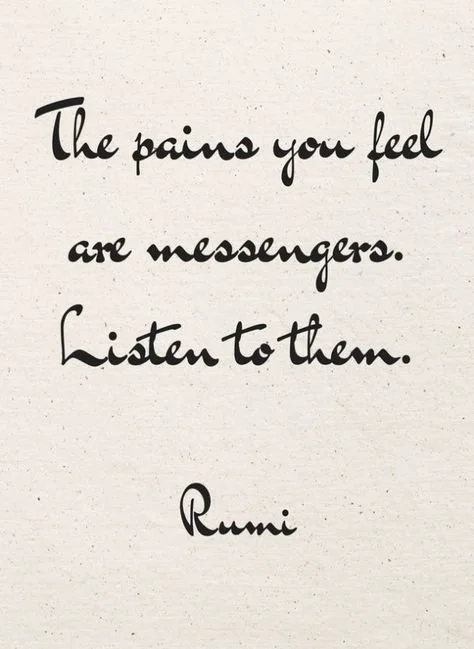 The pains you feel
are messengers.
Listen to them.
Rumi